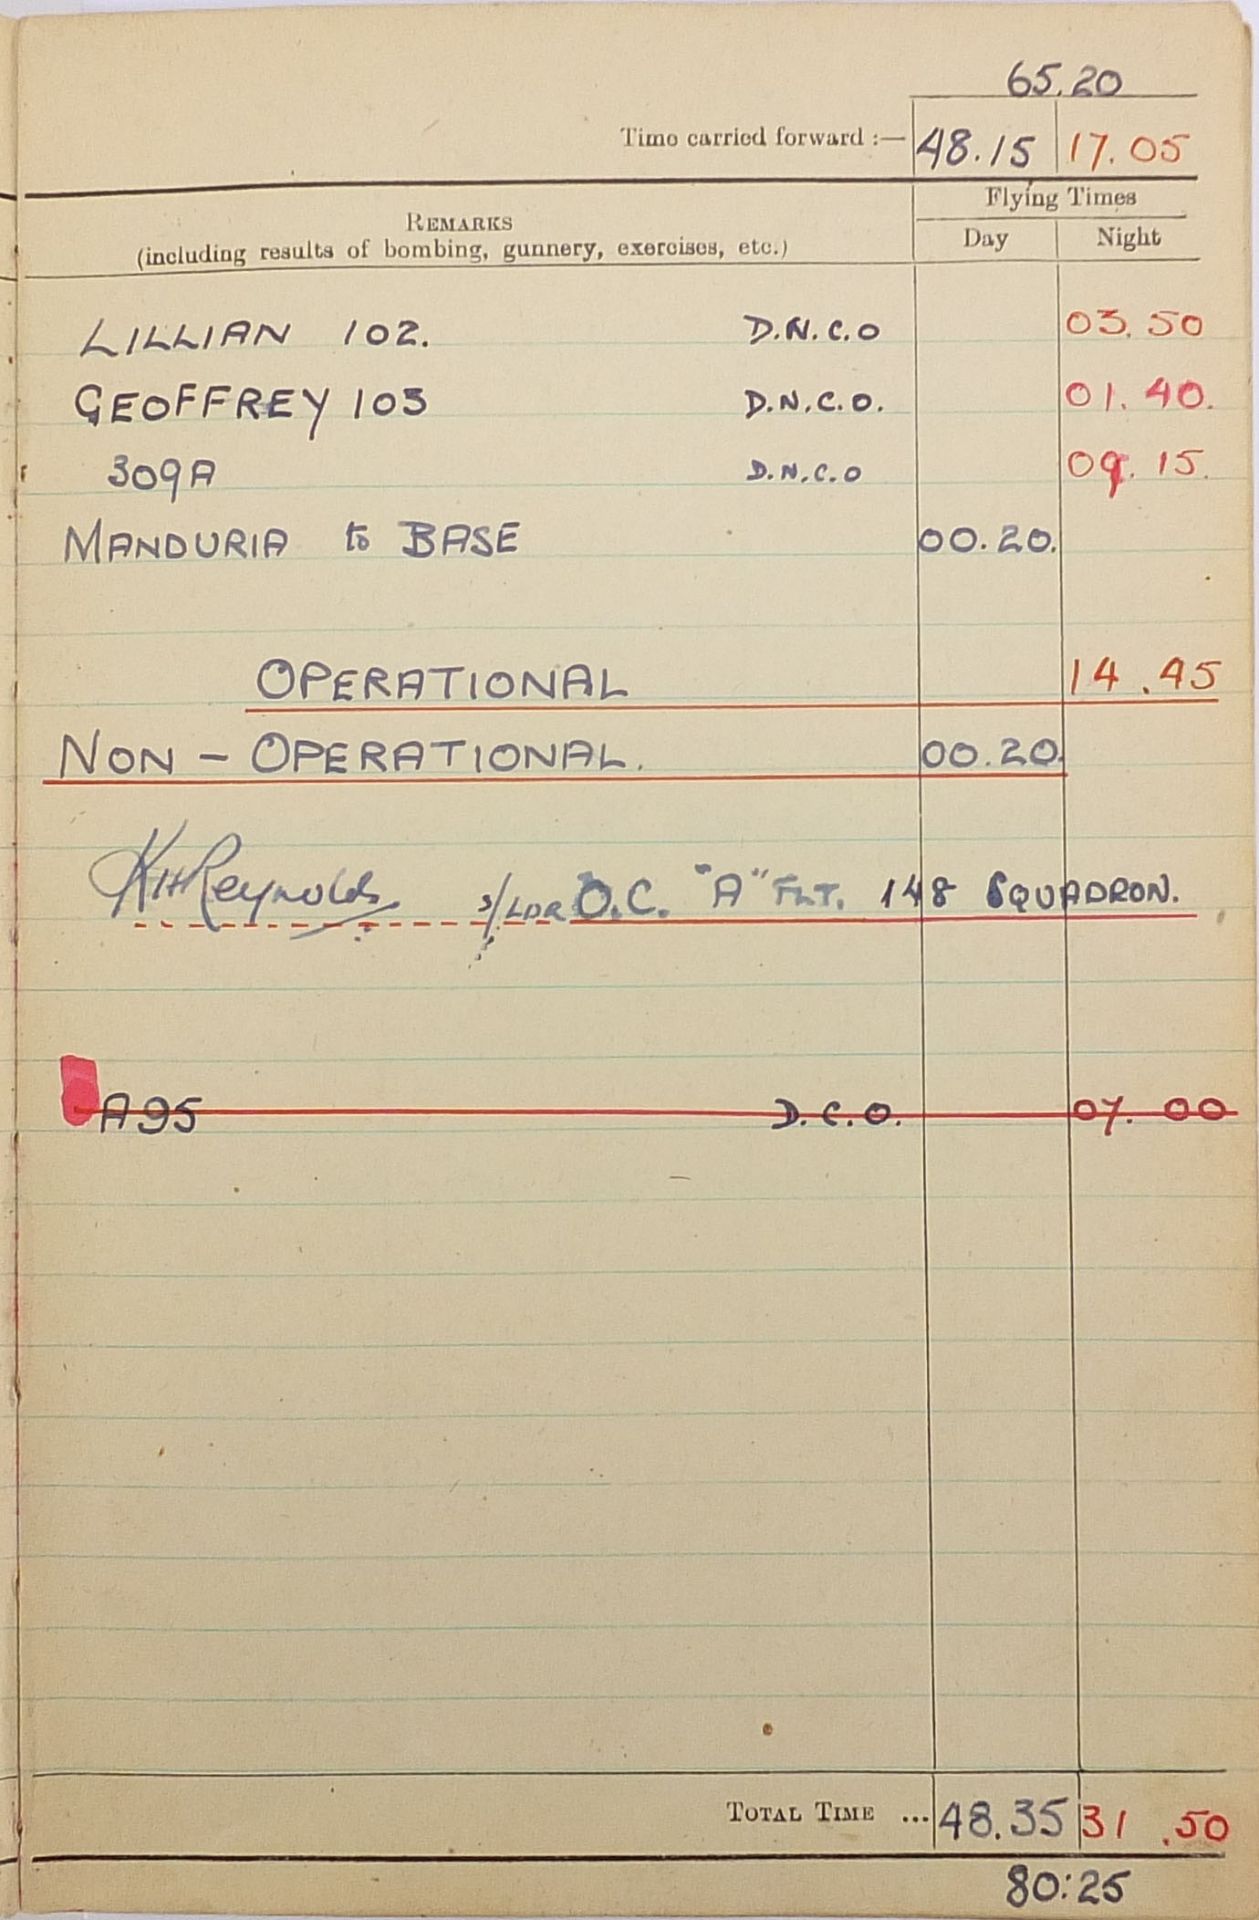 65.20
Time carried forward :— 48.15 17.05
REMARKS
(including results of bombing, gunnery, exercises, etc.)
Flying Times
Day Night
LILLIAN 102. D.N.C.O 03.50
GEOFFREY 103 D.N.C.O. 01.40.
309A D.N.C.O 09.15.
MANDURIA to BASE 00.20.
OPERATIONAL 14.45
NON - OPERATIONAL. 00.20
KHReynolds S/LDR O.C. "A" FLT. 148 SQUADRON.
A95 D.C.O. 07.00
TOTAL TIME ... 48.35 31.50
80:25